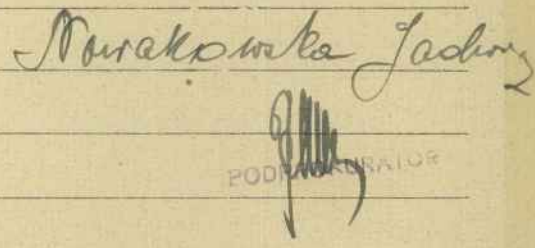 Nowakowska Jadwig
PODPROKURATOR